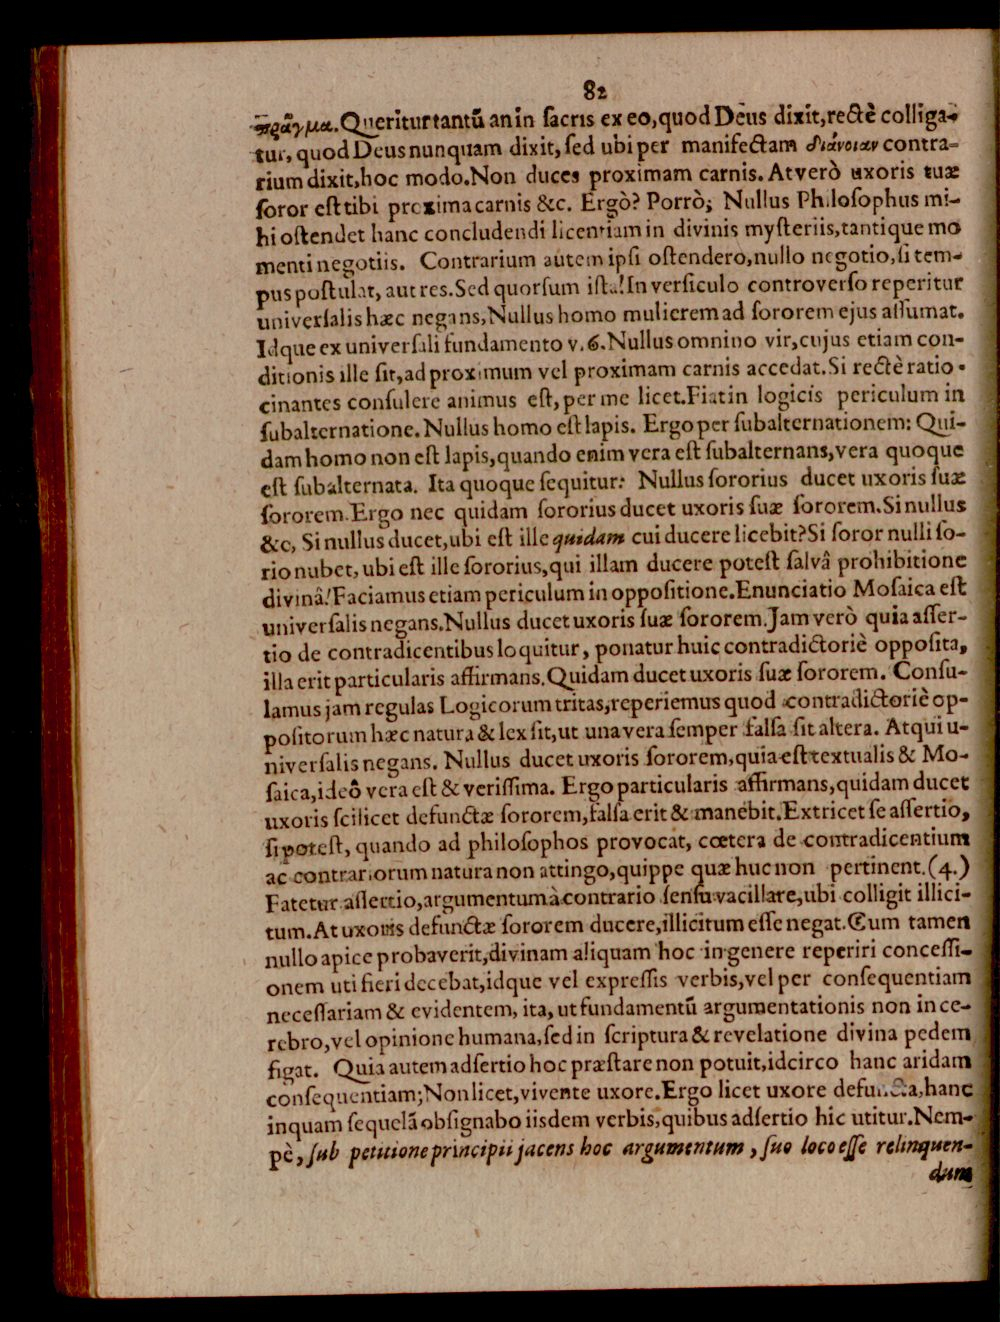 82
πρᾶγμα. Queritur tantũ an in ſacris ex eo, quod Deus dixit, rectè colliga-
tur, quod Deus nunquam dixit, ſed ubi per manifeſtam διάνοιαν contra-
rium dixit, hoc modo. Non duces proximam carnis. At verò uxoris tuæ
ſoror eſt tibi proxima carnis &c. Ergò? Porrò; Nullus Philoſophus mi-
hi oſtendet hanc concludendi licentiam in divinis myſteriis, tantique mo
menti negotiis. Contrarium autem ipſi oſtendero, nullo negotio, ſi tem-
pus poſtulat, aut res. Sed quorſum iſta! In verſiculo controverſo reperitur
univerſalis hæc negans, Nullus homo mulierem ad ſororem ejus aſſumat.
Idque ex univerſali fundamento v. 6. Nullus omnino vir, cujus etiam con-
ditionis ille ſit, ad proximum vel proximam carnis accedat. Si rectè ratio-
cinantes conſulere animus eſt, per me licet. Fiat in logicis periculum in
ſubalternatione. Nullus homo eſt lapis. Ergo per ſubalternationem: Qui-
dam homo non eſt lapis, quando enim vera eſt ſubalternans, vera quoque
eſt ſubalternata. Ita quoque ſequitur: Nullus ſororius ducet uxoris ſuæ
ſororem. Ergo nec quidam ſororius ducet uxoris ſuæ ſororem. Si nullus
&c, Si nullus ducet, ubi eſt ille quidam cui ducere licebit? Si ſoror nulli ſo-
rio nubet, ubi eſt ille ſororius, qui illam ducere poteſt ſalvâ prohibitione
divinâ! Faciamus etiam periculum in oppoſitione. Enunciatio Moſaica eſt
univerſalis negans. Nullus ducet uxoris ſuæ ſororem. Jam verò quia aſſer-
tio de contradicentibus loquitur, ponatur huic contradictoriè oppoſita,
illa erit particularis affirmans. Quidam ducet uxoris ſuæ ſororem. Conſu-
lamus jam regulas Logicorum tritas, reperiemus quod contradictoriè op-
poſitorum hæc natura & lex ſit, ut una vera ſemper falſa ſit altera. Atqui u-
niverſalis negans. Nullus ducet uxoris ſororem, quia eſt textualis & Mo-
ſaica, ideô vera eſt & veriſſima. Ergo particularis affirmans, quidam ducet
uxoris ſcilicet defunctæ ſororem, falſa erit & manebit. Extricet ſe aſſertio,
ſi poteſt, quando ad philoſophos provocat, cœtera de contradicentium
ac contrariorum natura non attingo, quippe quæ huc non pertinent. (4.)
Fatetur aſſertio, argumentum à contrario ſenſu vacillare, ubi colligit illici-
tum. At uxoris defunctæ ſororem ducere, illicitum eſſe negat. Cum tamen
nullo apice probaverit, divinam aliquam hoc in genere reperiri conceſſi-
onem uti fieri decebat, idque vel expreſſis verbis, vel per conſequentiam
neceſſariam & evidentem, ita, ut fundamentũ argumentationis non in ce-
rebro, vel opinione humana, ſed in ſcriptura & revelatione divina pedem
figat. Quia autem adſertio hoc præſtare non potuit, idcirco hanc aridam
conſequentiam; Non licet, vivente uxore. Ergo licet uxore defuncta, hanc
inquam ſequelã obſignabo iisdem verbis, quibus adſertio hic utitur. Nem-
pè, ſub petitione principii jacens hoc argumentum, ſuo loco eſſe relinquen-
dum